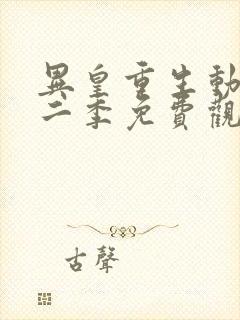 異皇重生動
二季免費觀
古聲